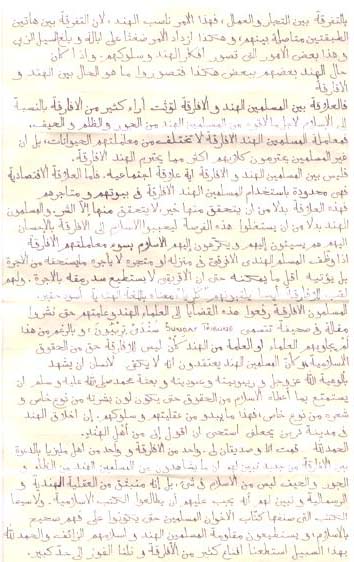 بالتفرقة بين التجار والعمال، فهذا الأمر ناسب الهند، لأن التفرقة بين هاتين
الطبقتين متأصلة بينهم، وهكذا ازداد الأمر ضغثا على ابالة وبلغ السيل الزبى
وهذا بعض الأمور التي تصور أفكار الهند وسلوكهم. وإذا كان
حال الهند بعضهم ببعض هكذا فتصوروا ما هو الحال بين الهند و
الأفارقة
فالعلاقة بين المسلمين الهند و الأفارقة لوثت آراء كثير من الأفارقة بالنسبة
إلى الاسلام من المسلمين الهند من الجور والظلم و الحيف.
فمعاملة المسلمين الهند الأفارقة لا تختلف من معاملتهم الحيوانات، بل ان
غير المسلمين يحترمون كلابهم أكثر مما يحترم الهند الأفارقة.
فليس بين المسلمين الهند و الأفارقة اية علاقة اجتماعية. فاما العلاقة الاقتصادية
فهي محدودة باستخدام المسلمين الهند الأفارقة في بيوتهم و متاجرهم
فهذه العلاقة بدلا من ان يتحقق منها خير، لا يتحقق منها إلا الشر، والمسلمون
الهند بدلا من ان يستغلوا هذه الفرصة ليحببوا الاسلام إلى الأفارقة بالإحسان
اليهم هم يسيئون اليهم و يكرهون إليهم الاسلام بسوء معاملتهم الأفارقة
اذا وظف المسلم الهندي الافريقي في منزله او متجره لا يأجره مايستحقه من الأجرة
بل يؤتيه أقل ما يمكنه حتى ان الأفريقي لا يستطيع سد رمقه بالأجرة. ولهم
لقب للأفارقة
المسلمون الأفارقة رفعوا هذه القضايا إلى العلماء الهند وعامتهم حتى نشروا
مقالة في صحيفة تتسمى SUNDAY TRIBUNE و بالرغم من هذا
لم يحاولهم العلماء او العامة من الهند كأن ليس للأفارقة حق من الحقوق
الاسلامية، و كأن المسلمين الهند يعتقدون انه لا يكفي لانسان ان يشهد
بألوهية الله عز وجل و ربوبيته وعبوديته و بعثة محمد صلى الله عليه وسلم ان
يستمتع بما أعطاه الاسلام من الحقوق حتى يكون لون بشرته من نوع خاص و
شعره من نوع خاص، فهذا ما يبدو من عقليتهم و سلوكهم. إن اخلاق الهند
في مدينة دربن يجعلني استحي ان اقول إني من أهل الهند.
الحمد لله قمت انا و صديقان لي، واحد من الأفارقة و واحد من أهل مليزيا بالدورة
بين الأفارقة من جديد نبين لهم ان ما يشاهدون من المسلمين الهند من الظلم و
الجور والحيف ليس من الاسلام في شيء، بل إنه منبثق من العقلية الهندية و
الرسمالية و نبين لهم أنه يجب عليهم أن يطالعوا الكتب الاسلامية. ولاسيما
الكتب التي صنفها كتاب الاخوان المسلمين حتى يكونوا على فهم صحيح
بالاسلام، و يستطيعون مقاومة المسلمين الهند و اسلامهم الزائف والحمد لله
بهذا السبيل استطعنا إقناع كثير من الأفارقة و نلنا الفوز إلى حد كبير.